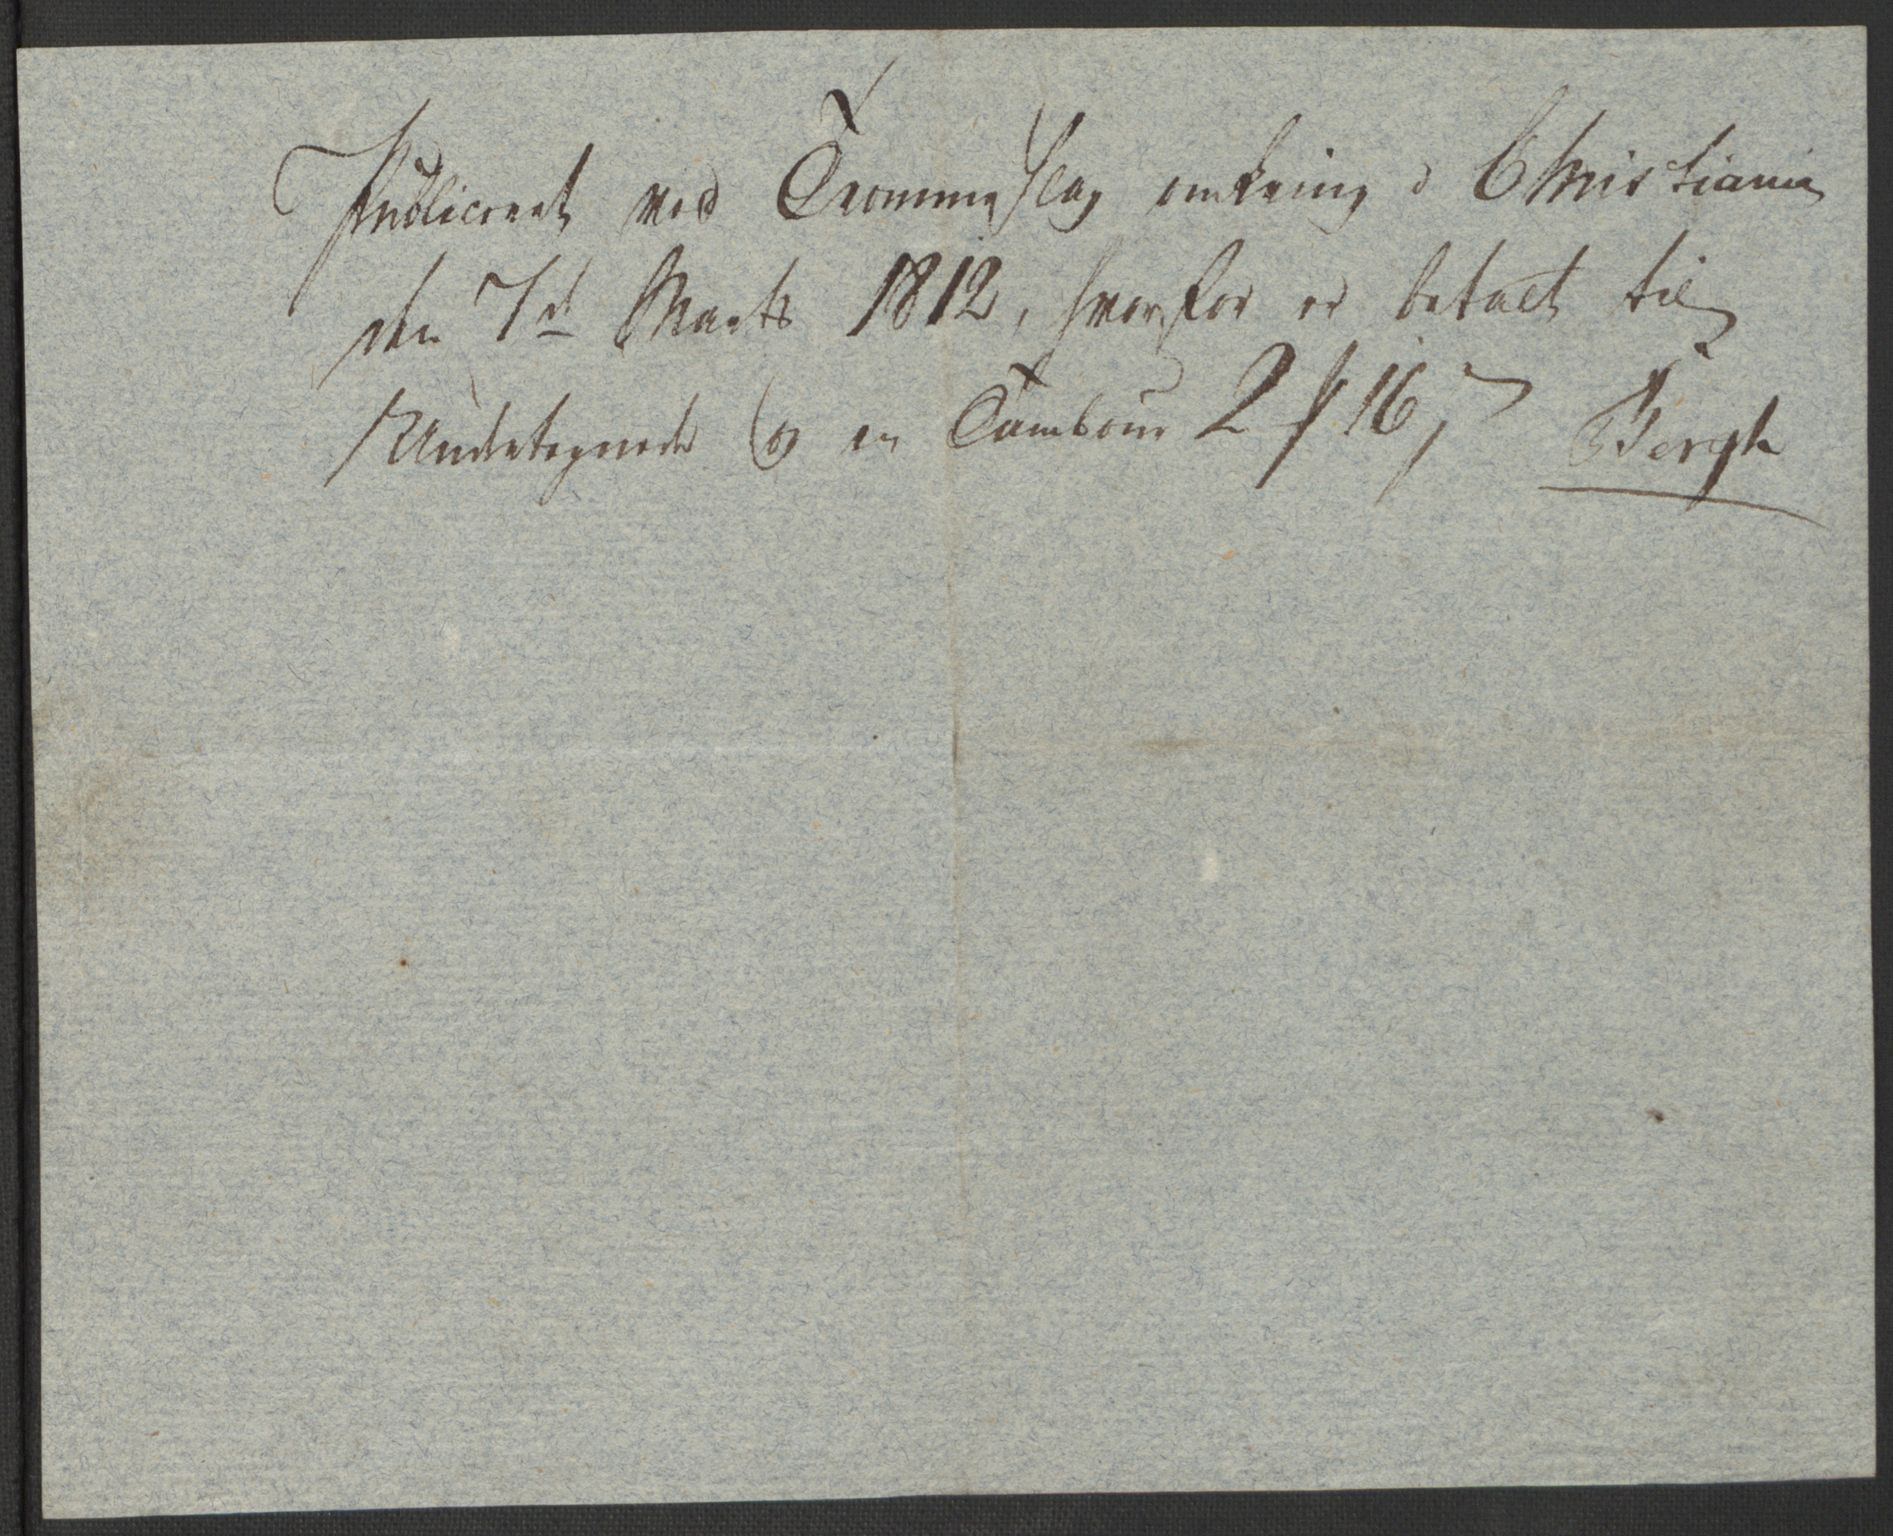 Publiceret ved Trommeslag omkring i Christiania
den 7d Marts 1812, hvorfor er betalt til
Undertegnede og en Tambour 2 f 16 s
Bergh